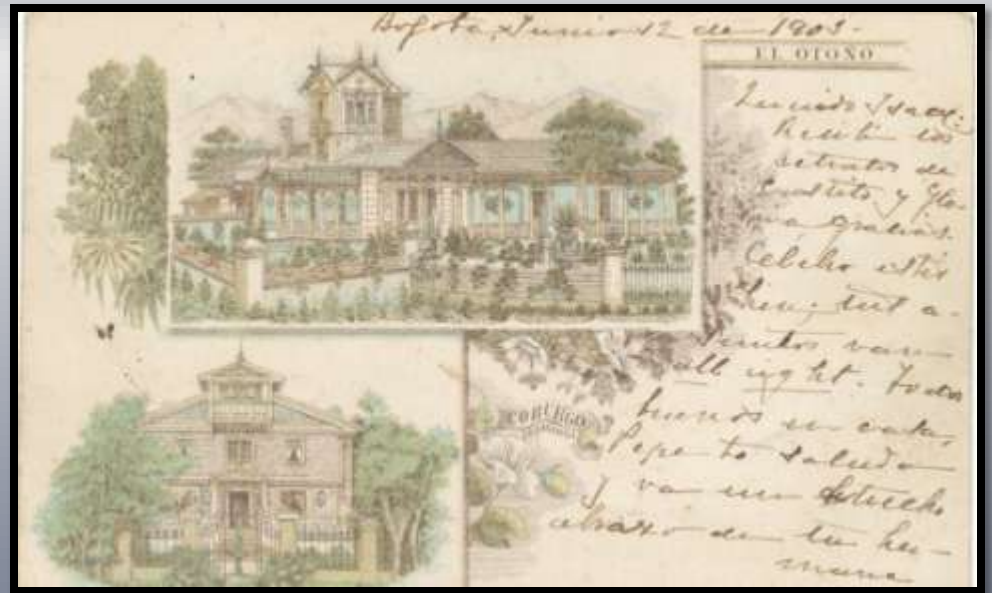 Bogotá, Junio 12 de 1903.
EL OTOÑO
Querido Isaac.
Recibí los
retratos de
y Glo-
ria gracias.
Celebro estés
bien; tut a-
suntos van
all right. Todos
buenos en casa,
Pepe te saluda
y va un estrecho
abrazo de tu her-
mana